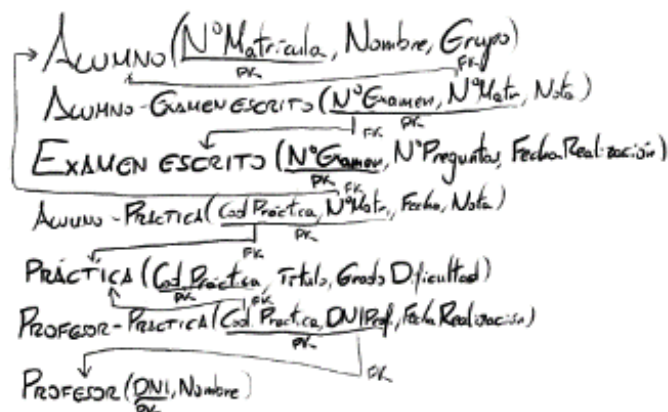 ALUMNO (NºMatrícula, Nombre, Grupo)
PK FK
ALUMNO-EXAMEN ESCRITO (NºExamen, NºMatr, Nota)
FK PK
EXAMEN ESCRITO (NºExamen, NºPreguntas, Fecha Realización)
PK FK
ALUMNO-PRÁCTICA (Cod Práctica, NºMatr, Fecha, Nota)
FK PK
PRÁCTICA (Cod Práctica, Título, Grado Dificultad)
PK FK
PROFESOR-PRÁCTICA (Cod Practica, DNIProf, Fecha Realización)
PK
FK
PROFESOR (DNI, Nombre)
PK